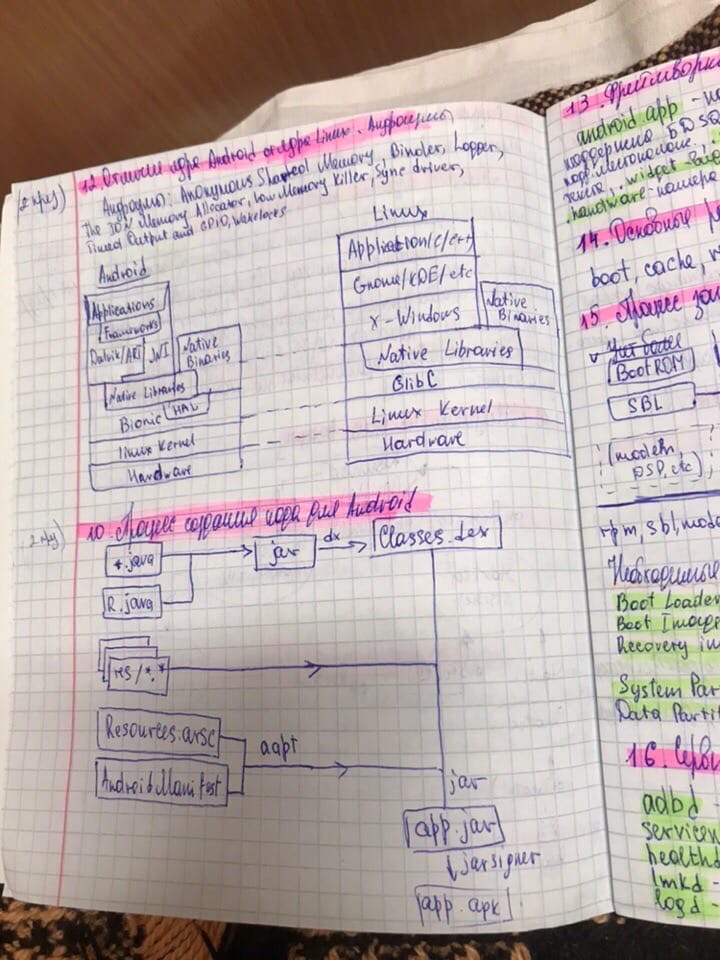 12. Отличия ядра Android от ядра Linux. Андроидизмы
2 тиу)
Андрдизмо: Anonymous Shared Memory, Binder, Logger,
The ION Memory Allocator, Low Memory Killer, Sync driver,
Timed Output and GPIO, Wakelocks
Android
Applications
Frameworks
Dalvik/ART
JNI
Native Binaries
Native Libraries
Bionic
HAL
Linux Kernel
Hardware
Linux
Application/C/C++
Gnome/KDE/etc
X-Windows
Native Binaries
Native Libraries
GlibC
Linux Kernel
Hardware
10. Процес создания кода для Android
*.java
R.java
jar
dx
Classes.dex
res/*.*
Resources.arsc
AndroidManifest
aapt
jar
app.jar
jarsigner
app.apk
13. Фреймворк
android app -
поддержка БД SQ
.widget
.hardware - камера
14. Основные
boot, cache,
15. Процес
BootROM
SBL
(modem,
DSP, etc)
rpm, sbl,
Необходимые
Boot Loader
Boot Image
Recovery im
System Par
Data Partit
16. Серви
adbd -
servicem
healthd
lmkd -
logd -